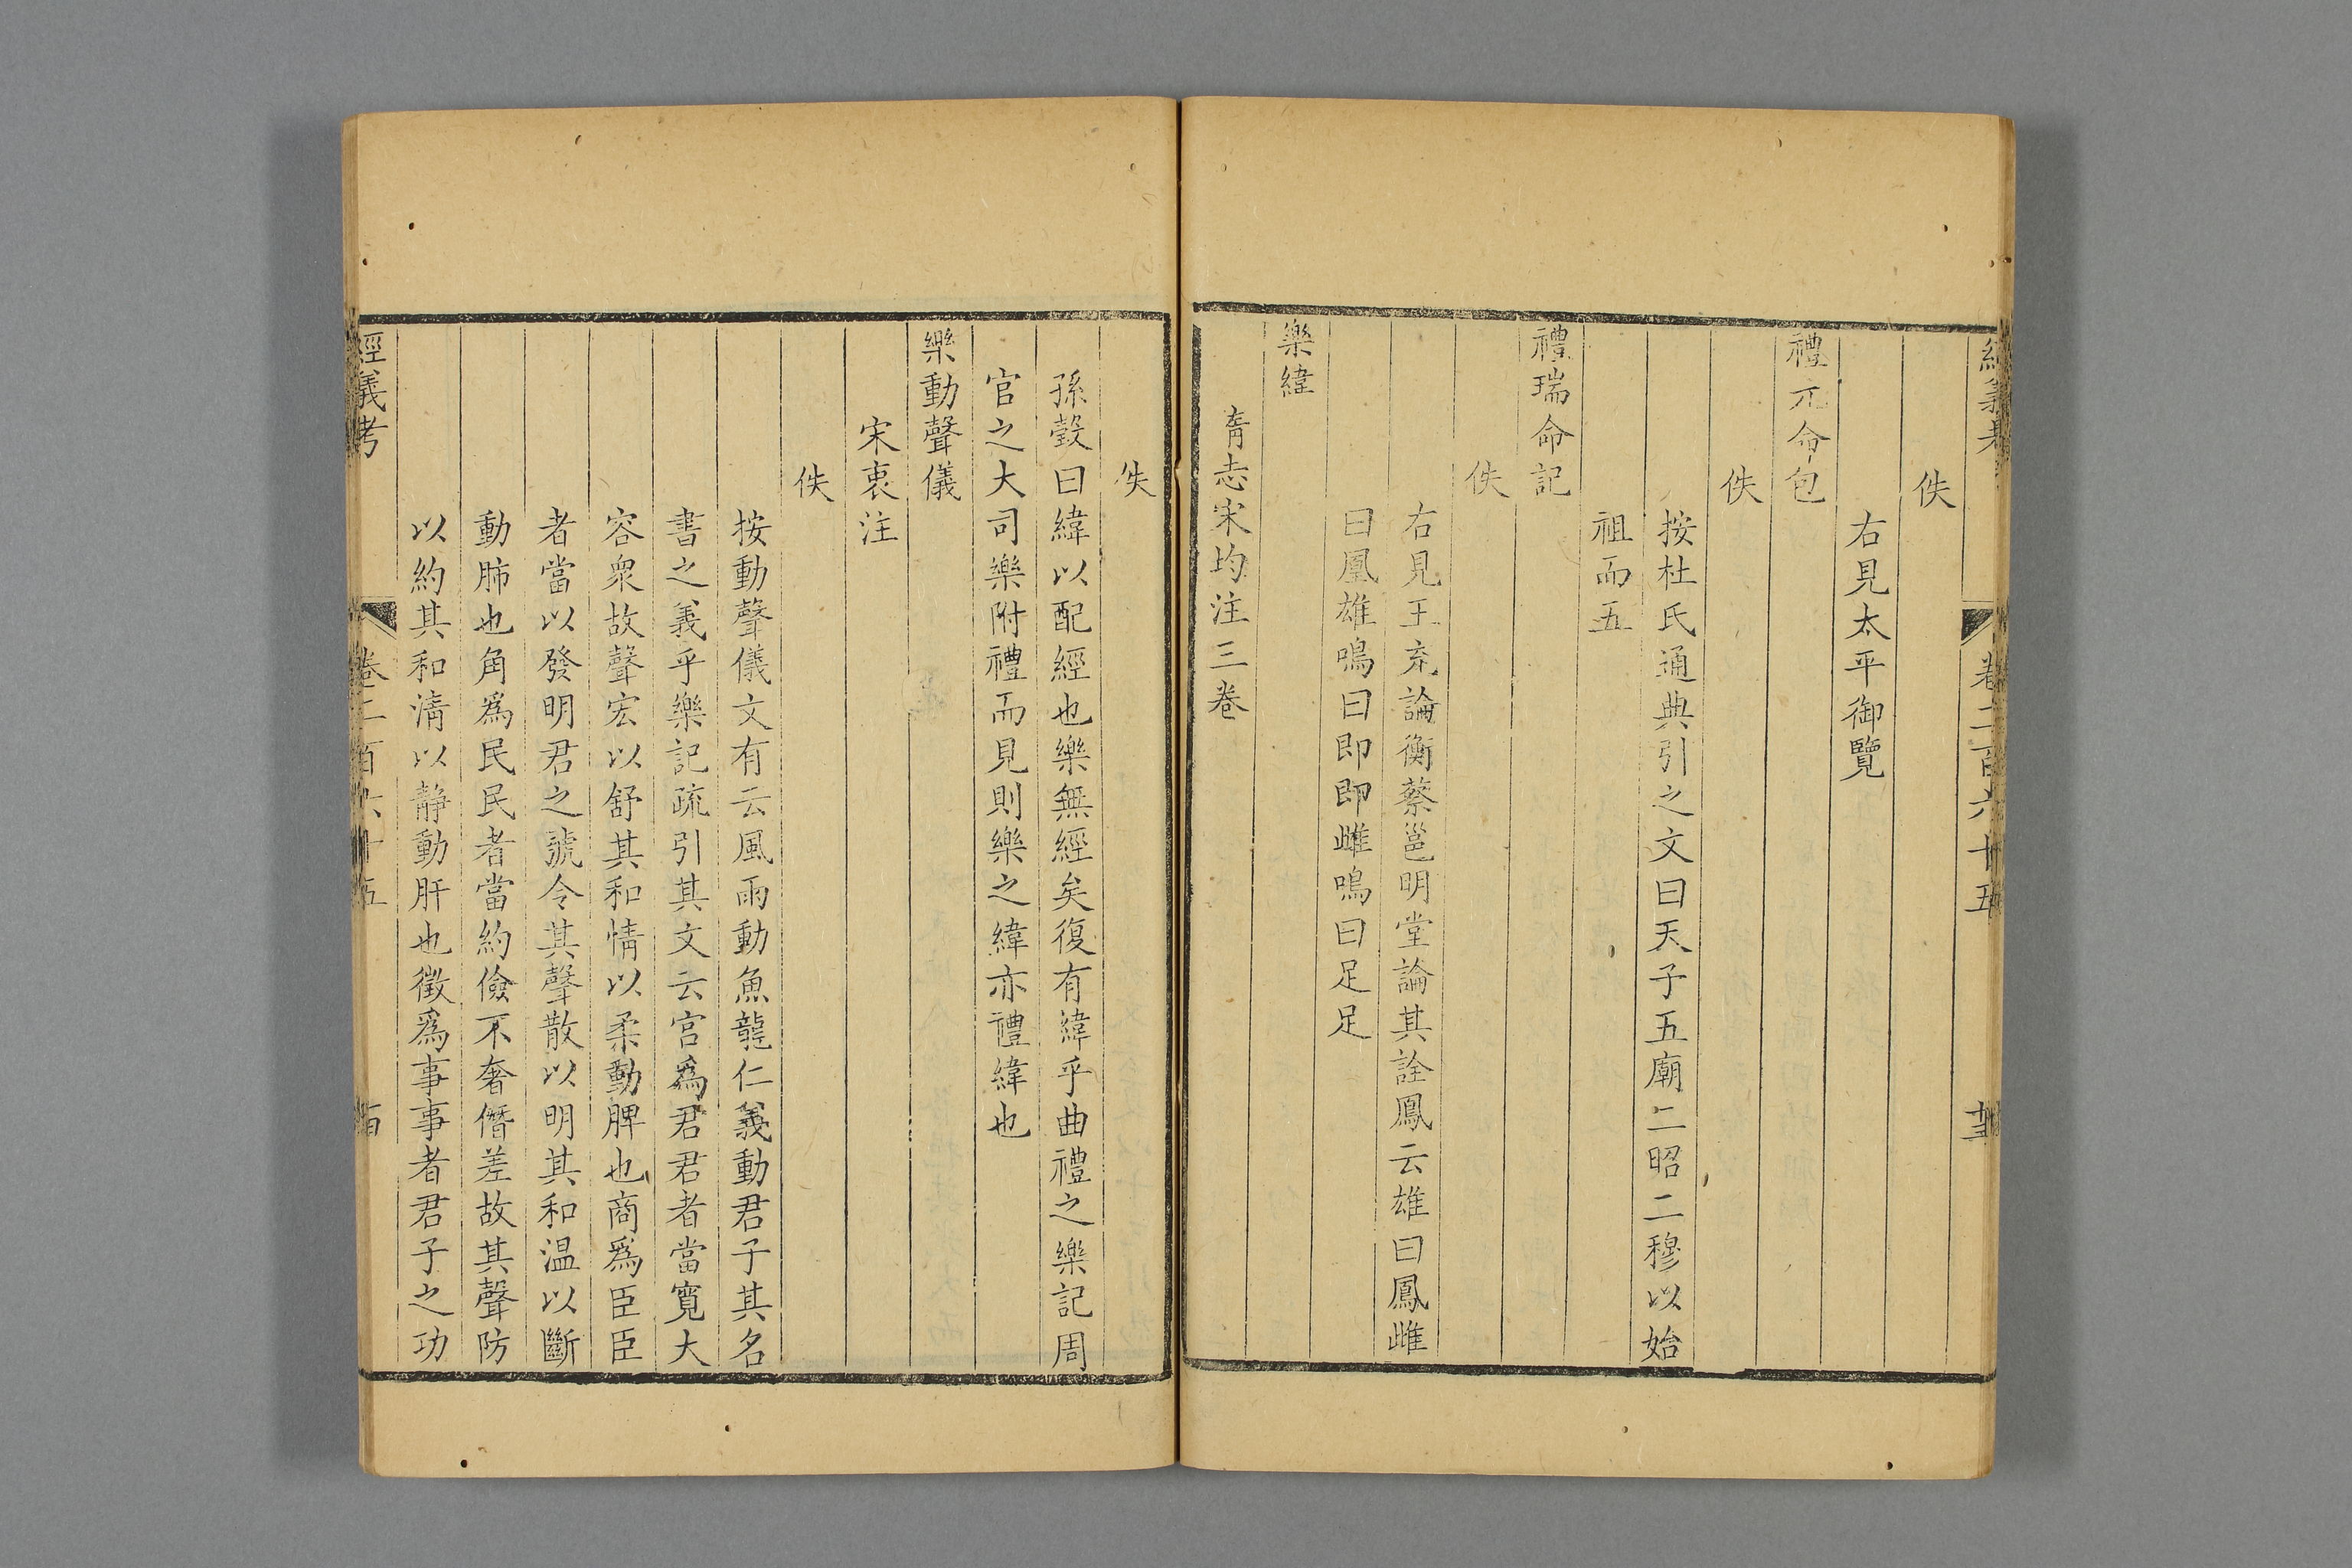 經義考 卷二百六十五
佚
右見太平御覽
禮元命包
佚
按杜氏通典引之文曰天子五廟二昭二穆以始
祖而五
禮瑞命記
佚
右見王充論衡蔡邕明堂論其詮鳳云雄曰鳳雌
曰凰雄鳴曰即即雌鳴曰足足
樂緯
隋志宋均注三卷
佚
孫瑴曰緯以配經也樂無經矣復有緯乎曲禮之樂記周
官之大司樂附禮而見則樂之緯亦禮緯也
樂動聲儀
宋衷注
佚
按動聲儀文有云風雨動魚龍仁義動君子其名
書之義乎樂記疏引其文云宮爲君君者當寬大
容衆故聲宏以舒其和情以柔動脾也商爲臣臣
者當以發明君之號令其聲散以明其和温以斷
動肺也角爲民民者當約儉不奢僭差故其聲防
以約其和清以静動肝也徵爲事事者君子之功
經義考 卷二百六十五